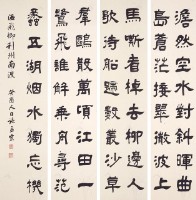 澹然空水對斜暉曲
島蒼茫接翠微波上
馬嘶看棹去柳邊人
歇待船歸數叢沙草
羣鷗散萬頃江田一
鷺飛誰解乘舟尋范
蠡五湖烟水獨忘機
溫飛卿利州南渡